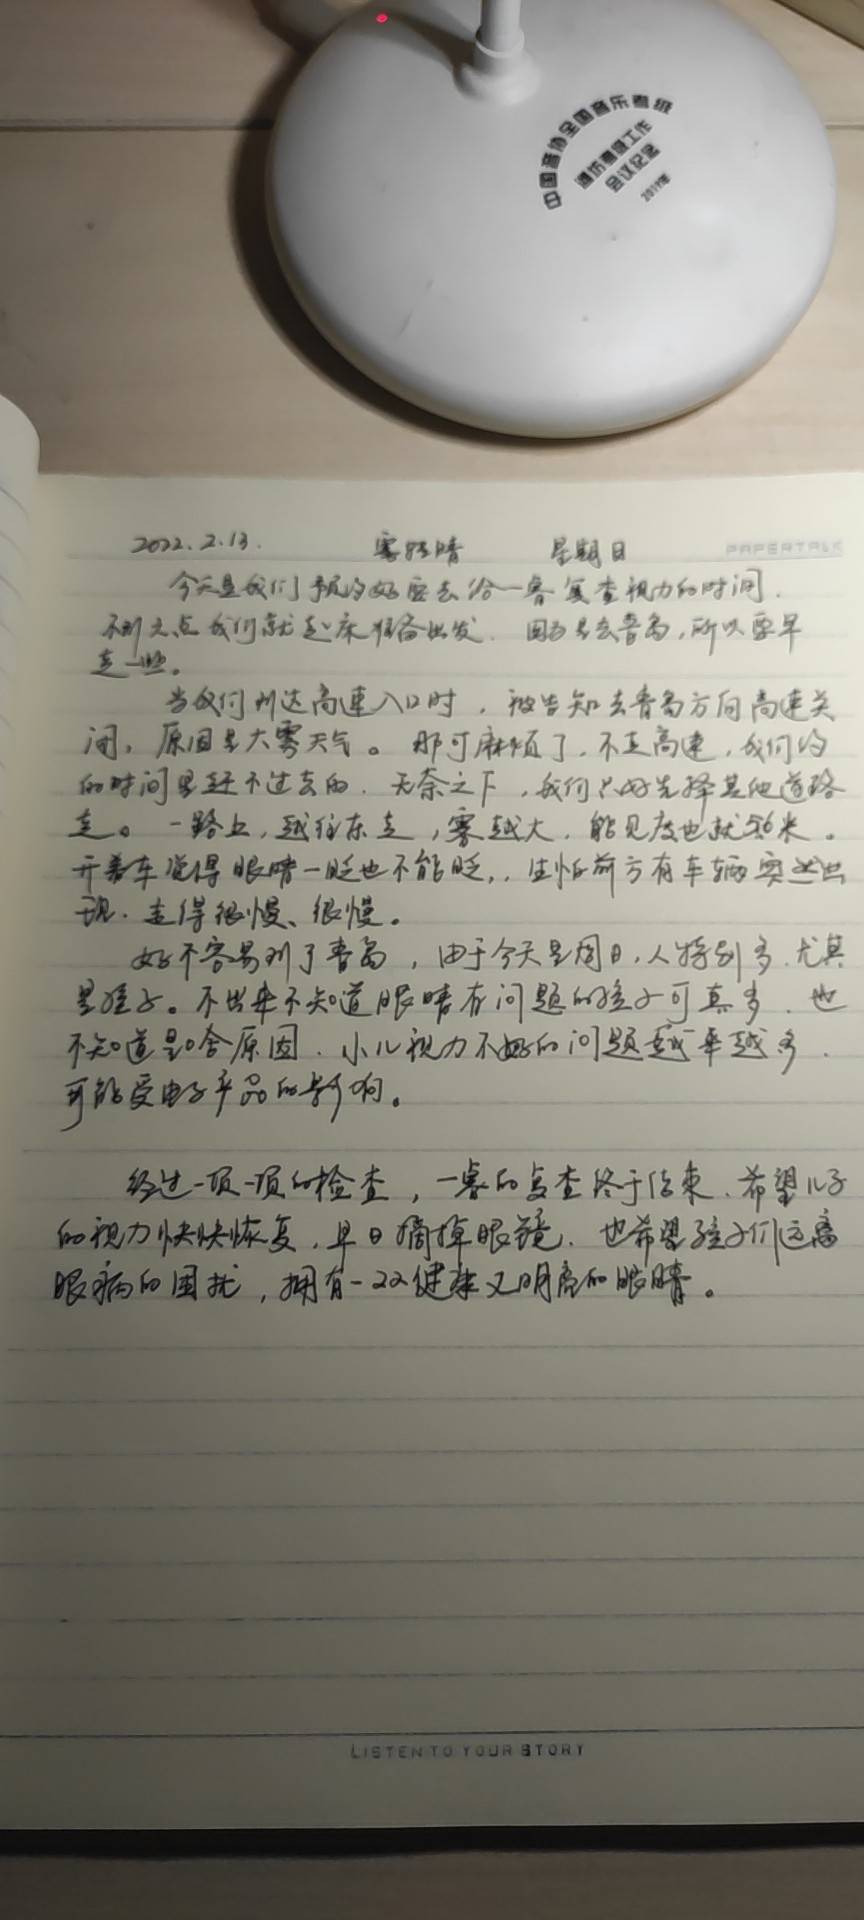 中国音协全国音乐考级
潍坊考级工作
会议纪念
2019年
2022.2.13. 雾转晴 星期日
PAPERTALK
今天是我们预约好要去给一睿复查视力的时间.
不到六点我们就起床准备出发. 因为是去青岛,所以要早
走一些。
当我们到达高速入口时,被告知去青岛方向高速关
闭,原因是大雾天气。那可麻烦了,不走高速,我们约
的时间是赶不过去的.无奈之下,我们只好选择其他道路
走。一路上,越往东走,雾越大,能见度也就50米。
开着车觉得眼睛一眨也不能眨,,生怕前方有车辆突然出
现.走得很慢、很慢。
好不容易到了青岛,由于今天是周日,人特别多.尤其
是孩子。不出来不知道眼睛有问题的孩子可真多.也
不知道是啥原因.小儿视力不好的问题越来越多.
可能受电子产品的影响。
经过一项一项的检查,一睿的复查终于结束.希望儿子
的视力快快恢复,早日摘掉眼镜.也希望孩子们远离
眼病的困扰,拥有一双健康又明亮的眼睛。
LISTEN TO YOUR STORY